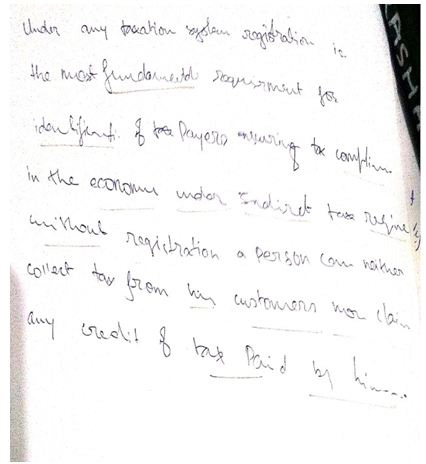 Under any taxation system registration is
the most fundamental requirment for
identificati. of tax Payers ensuring tax complian..
in the economy under Indirect tax regime
without registration a person can neither
collect tax from his customers nor claim
any credit of tax Paid by him....
KASH